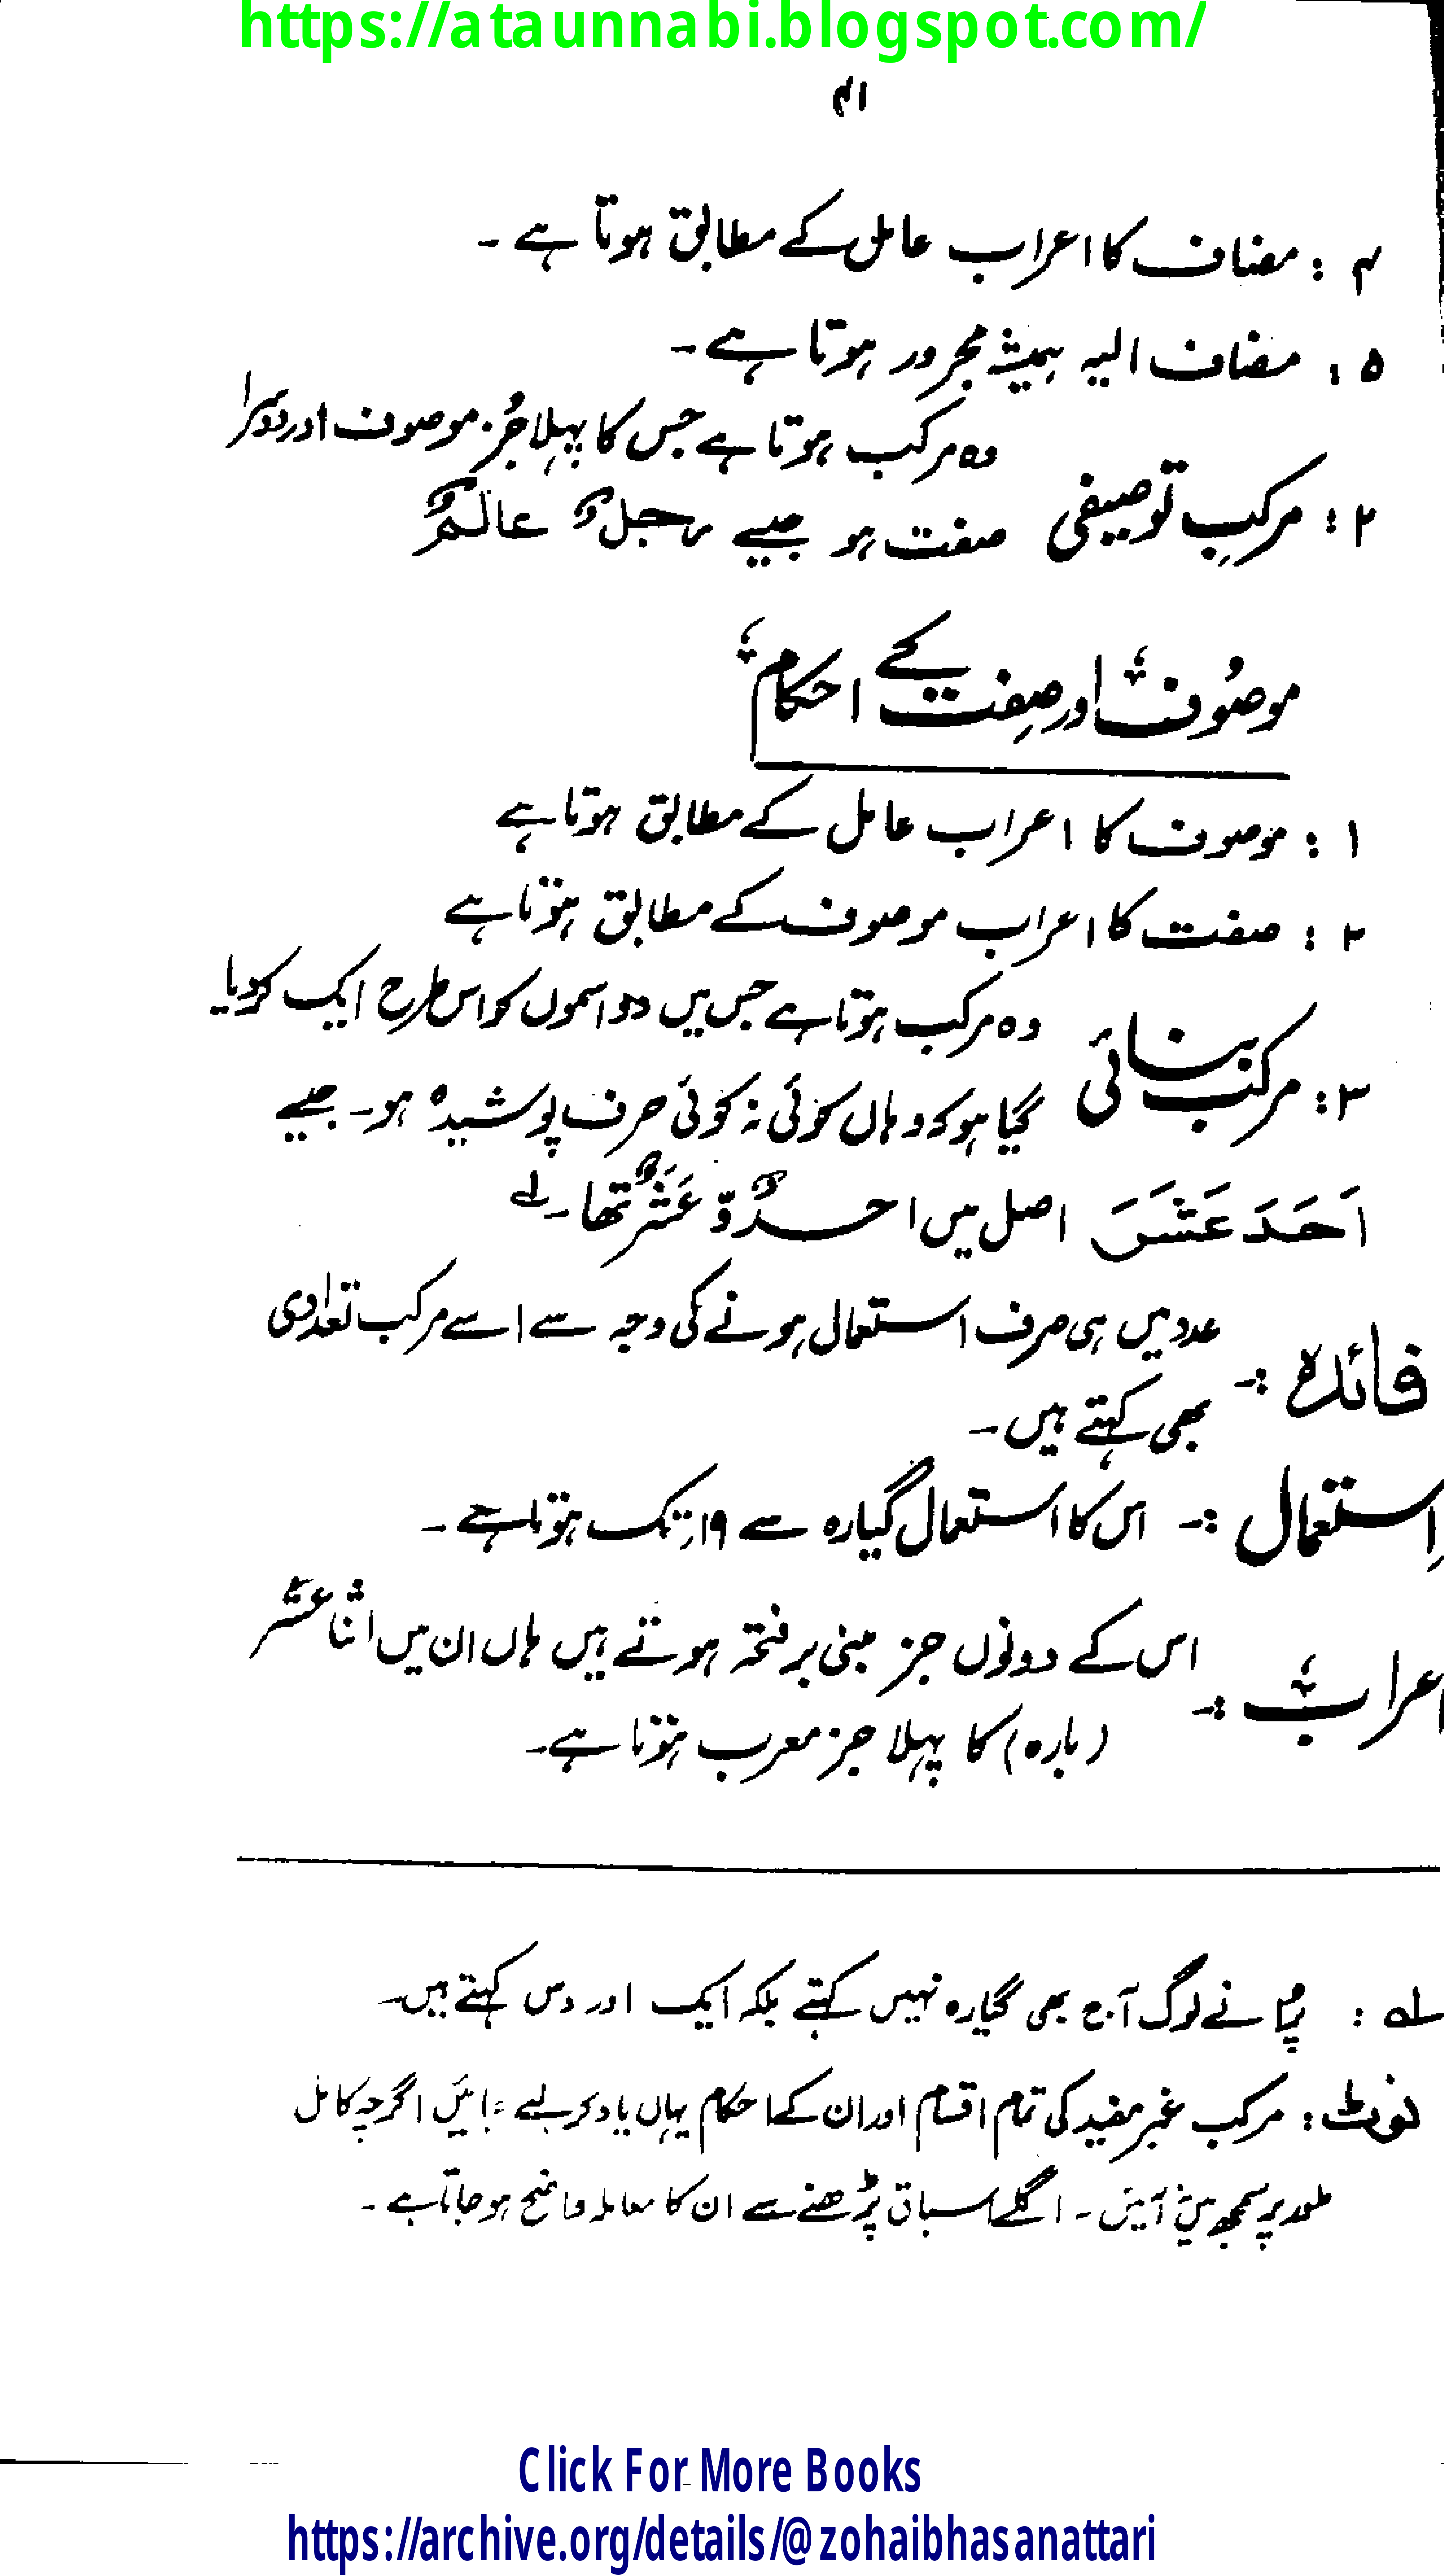 https://ataunnabi.blogspot.com/
۴۱
۴ : مضاف کا اعراب عامل کے مطابق ہوتا ہے ۔
۵ : مضاف الیہ ہمیشہ مجرور ہوتا ہے ۔
۲ : مرکبِ توصیفی وہ مرکب ہوتا ہے جس کا پہلا جُز موصوف اور دوسرا
صفت ہو جیسے رجلٌ عالمٌ
موصُوف اور صِفت کے احکام
۱ : موصوف کا اعراب عامل کے مطابق ہوتا ہے
۲ : صفت کا اعراب موصوف کے مطابق ہوتا ہے
۳ : مرکب بنائی وہ مرکب ہوتا ہے جس میں دو اسموں کو اس طرح ایک کر دیا
گیا ہو کہ وہاں کوئی نہ کوئی حرف پوشیدہ ہو ۔ جیسے
اَحَدَ عَشَرَ اصل میں احدٌ وّ عَشَرٌ تھا ۔ لے
فائدہ :۔ عدد میں ہی صرف استعمال ہونے کی وجہ سے اسے مرکب تعدادی
بھی کہتے ہیں ۔
اِستعمال :۔ اس کا استعمال گیارہ سے ۱۹ ر تک ہوتا ہے ۔
اعراب :۔ اس کے دونوں جز مبنی بر فتحہ ہوتے ہیں ہاں ان میں اثنا عشر
(بارہ) کا پہلا جز معرب ہوتا ہے ۔
لہ : پُرانے لوگ آج بھی گیارہ نہیں کہتے بلکہ ایک اور دس کہتے ہیں ۔
نوٹ : مرکب غیر مفید کی تمام اقسام اور ان کے احکام یہاں یاد کر لیے جائیں اگرچہ کامل
طور پر سمجھ میں آئیں ۔ اگلے اسباق پڑھنے سے ان کا معاملہ واضح ہو جاتا ہے ۔
Click For More Books
https://archive.org/details/@zohaibhasanattari